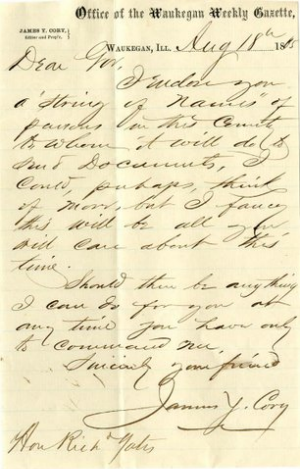 Office of the Waukegan Weekly Gazette,
JAMES Y. CORY,
Editor and Prop'r.
WAUKEGAN, ILL. Aug 18th 18
Dear Gov.
I enclose you
a "String of Names" of
persons in this County
to whom it will do to
send Documents, I
could, perhaps, think
of more, but I fancy
this will be all you
will care about this
time.
Should there be anything
I can do for you at
any time you have only
to command me,
Sincerely your friend
James Y. Cory
Hon Richd Yates